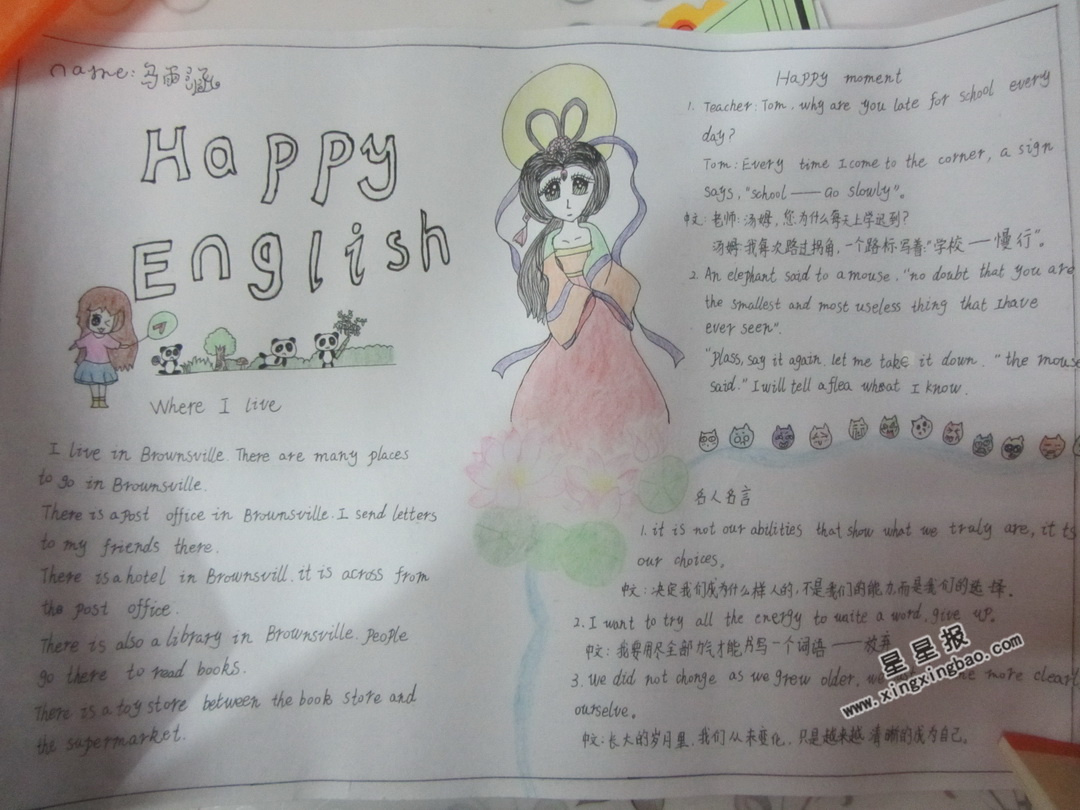 name: 乌雨涵
Happy
English
Where I live
I live in Brownsville. There are many places
to go in Brownsville.
There is a post office in Brownsville. I send letters
to my friends there.
There is a hotel in Brownsvill. it is across from
the post office.
There is also a library in Brownsville. people
go there to read books.
There is a toy store between the book store and
the supermarket.
Happy moment
1. Teacher: Tom, why are you late for school every
day?
Tom: Every time I come to the corner, a sign
says, "school — Go slowly".
中文: 老师: 汤姆, 您为什么每天上学迟到?
汤姆: 我每次路过拐角, 一个路标写着:"学校 — 慢行"。
2. An elephant said to a mouse, "no doubt that you are
the smallest and most useless thing that I have
ever seen".
"Plass, say it again. let me take it down. " the mouse
said. " I will tell a flea what I know.
名人名言
1. it is not our abilities that show what we truly are, it is
our choices.
中文: 决定我们成为什么样人的, 不是我们的能力, 而是我们的选择.
2. I want to try all the energy to write a word, give up.
中文: 我要用尽全部力气才能书写一个词语 —— 放弃
3. we did not change as we grew older, we more clearl
ourselve.
中文: 长大的岁月里, 我们从未变化, 只是越来越清晰的成为自己。
星星报
www.xingxingbao.com